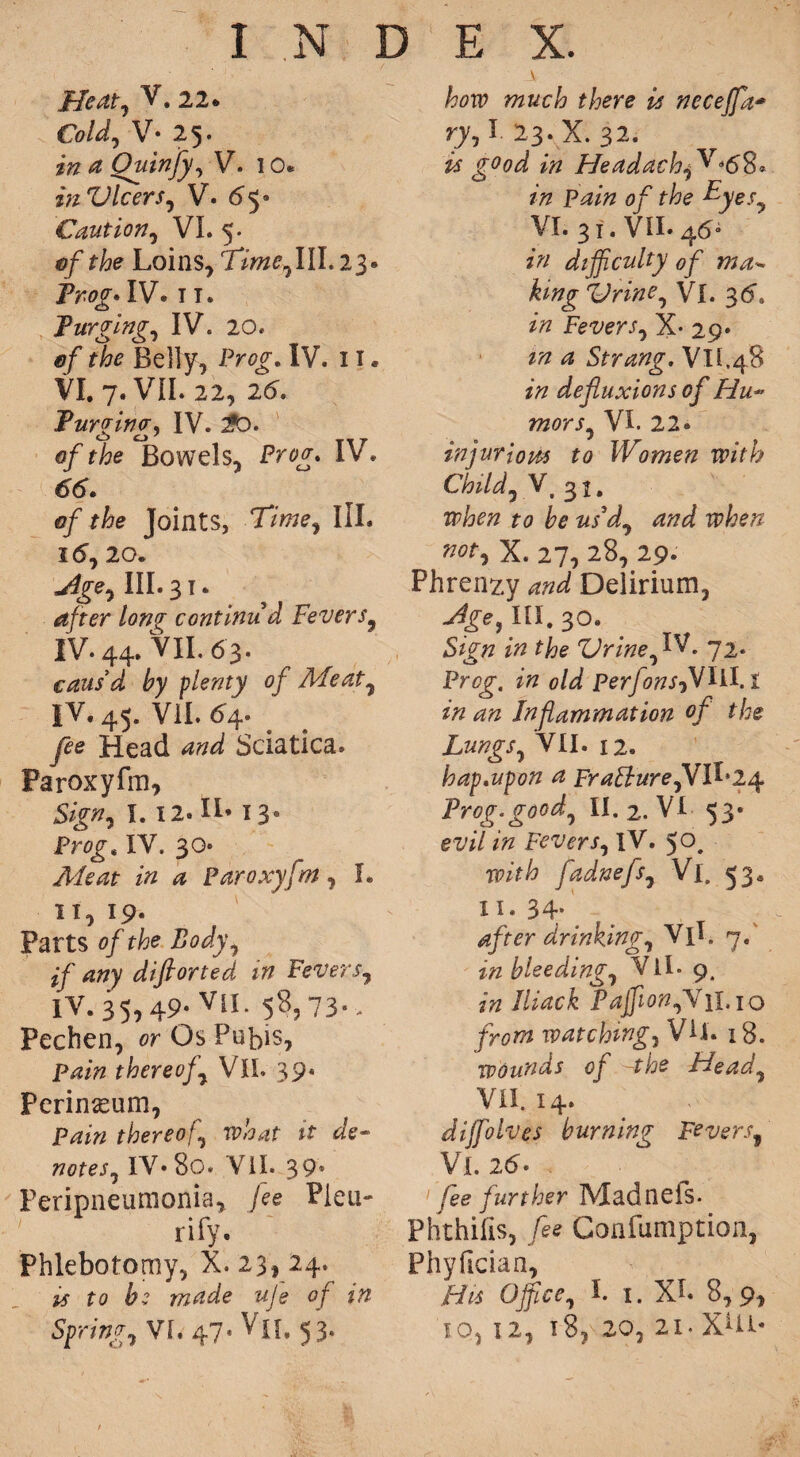 INDEX.
Heat, V. 22.
Cold, V. 25.
in a Quinſy, V. 10.
in Ulcers, V. 65.
Caution, VI. 5.
of the Loins, Time, III. 23.
Prog. IV. 11.
Purging, IV. 20.
of the Belly, Prog. IV. 11.
VI. 7. VII. 22, 26.
Purging, IV. 20.
of the Bowels, Prog. IV.
66.
of the Joints, Time, III.
16, 20.
Age, III. 31.
after long continu'd Fevers,
IV. 44. VII. 63.
caus'd by plenty of Meat,
IV. 45. VII. 64.
ſee Head and Sciatica.
Paroxyſm,
Sign, I. 12. II. 13.
Prog. IV. 30.
Meat in a Paroxyſm, I.
11, 19.
Parts of the Body,
if any diſtorted in Fevers,
IV. 35, 49. VII. 58, 73.
Pechen, or Os Pubis,
Pain thereof, VII. 39.
Perinæum,
Pain thereof, what it de-
notes, IV. 80. VII. 39.
Peripneumonia, ſee Pleu-
riſy.
Phlebotomy, X. 23, 24.
is to be made uſe of in
Spring, VI. 47. VII. 53.
how much there is neceſſa-
ry, I. 23. X. 32.
is good in Headach, V. 68.
in Pain of the Eyes,
VI. 31. VII. 46.
in difficulty of ma-
king Urine, VI. 36.
in Fevers, X. 29.
in a Strang. VII. 48
in defluxions of Hu-
mors, VI. 22.
injurious to Women with
Child, V. 31.
when to be us'd, and when
not, X. 27, 28, 29.
Phrenzy and Delirium,
Age, III. 30.
Sign in the Urine, IV. 72.
Prog. in old Perſons, VIII. 1
in an Inflammation of the
Lungs, VII. 12.
hap. upon a Fracture, VII. 24
Prog. good, II. 2. VI. 53.
evil in Fevers, IV. 50.
with ſadneſs, VI. 53.
11. 34.
after drinking, VII. 7.
in bleeding, VII. 9.
in Iliack Paſſion, VII. 10
from watching, VII. 18.
wounds of the Head,
VII. 14.
diſſolves burning Fevers,
VI. 26.
ſee further Madneſs.
Phthiſis, ſee Conſumption,
Phyſician,
His Office, I. 1. XI. 8, 9,
10, 12, 18, 20, 21. XIII.